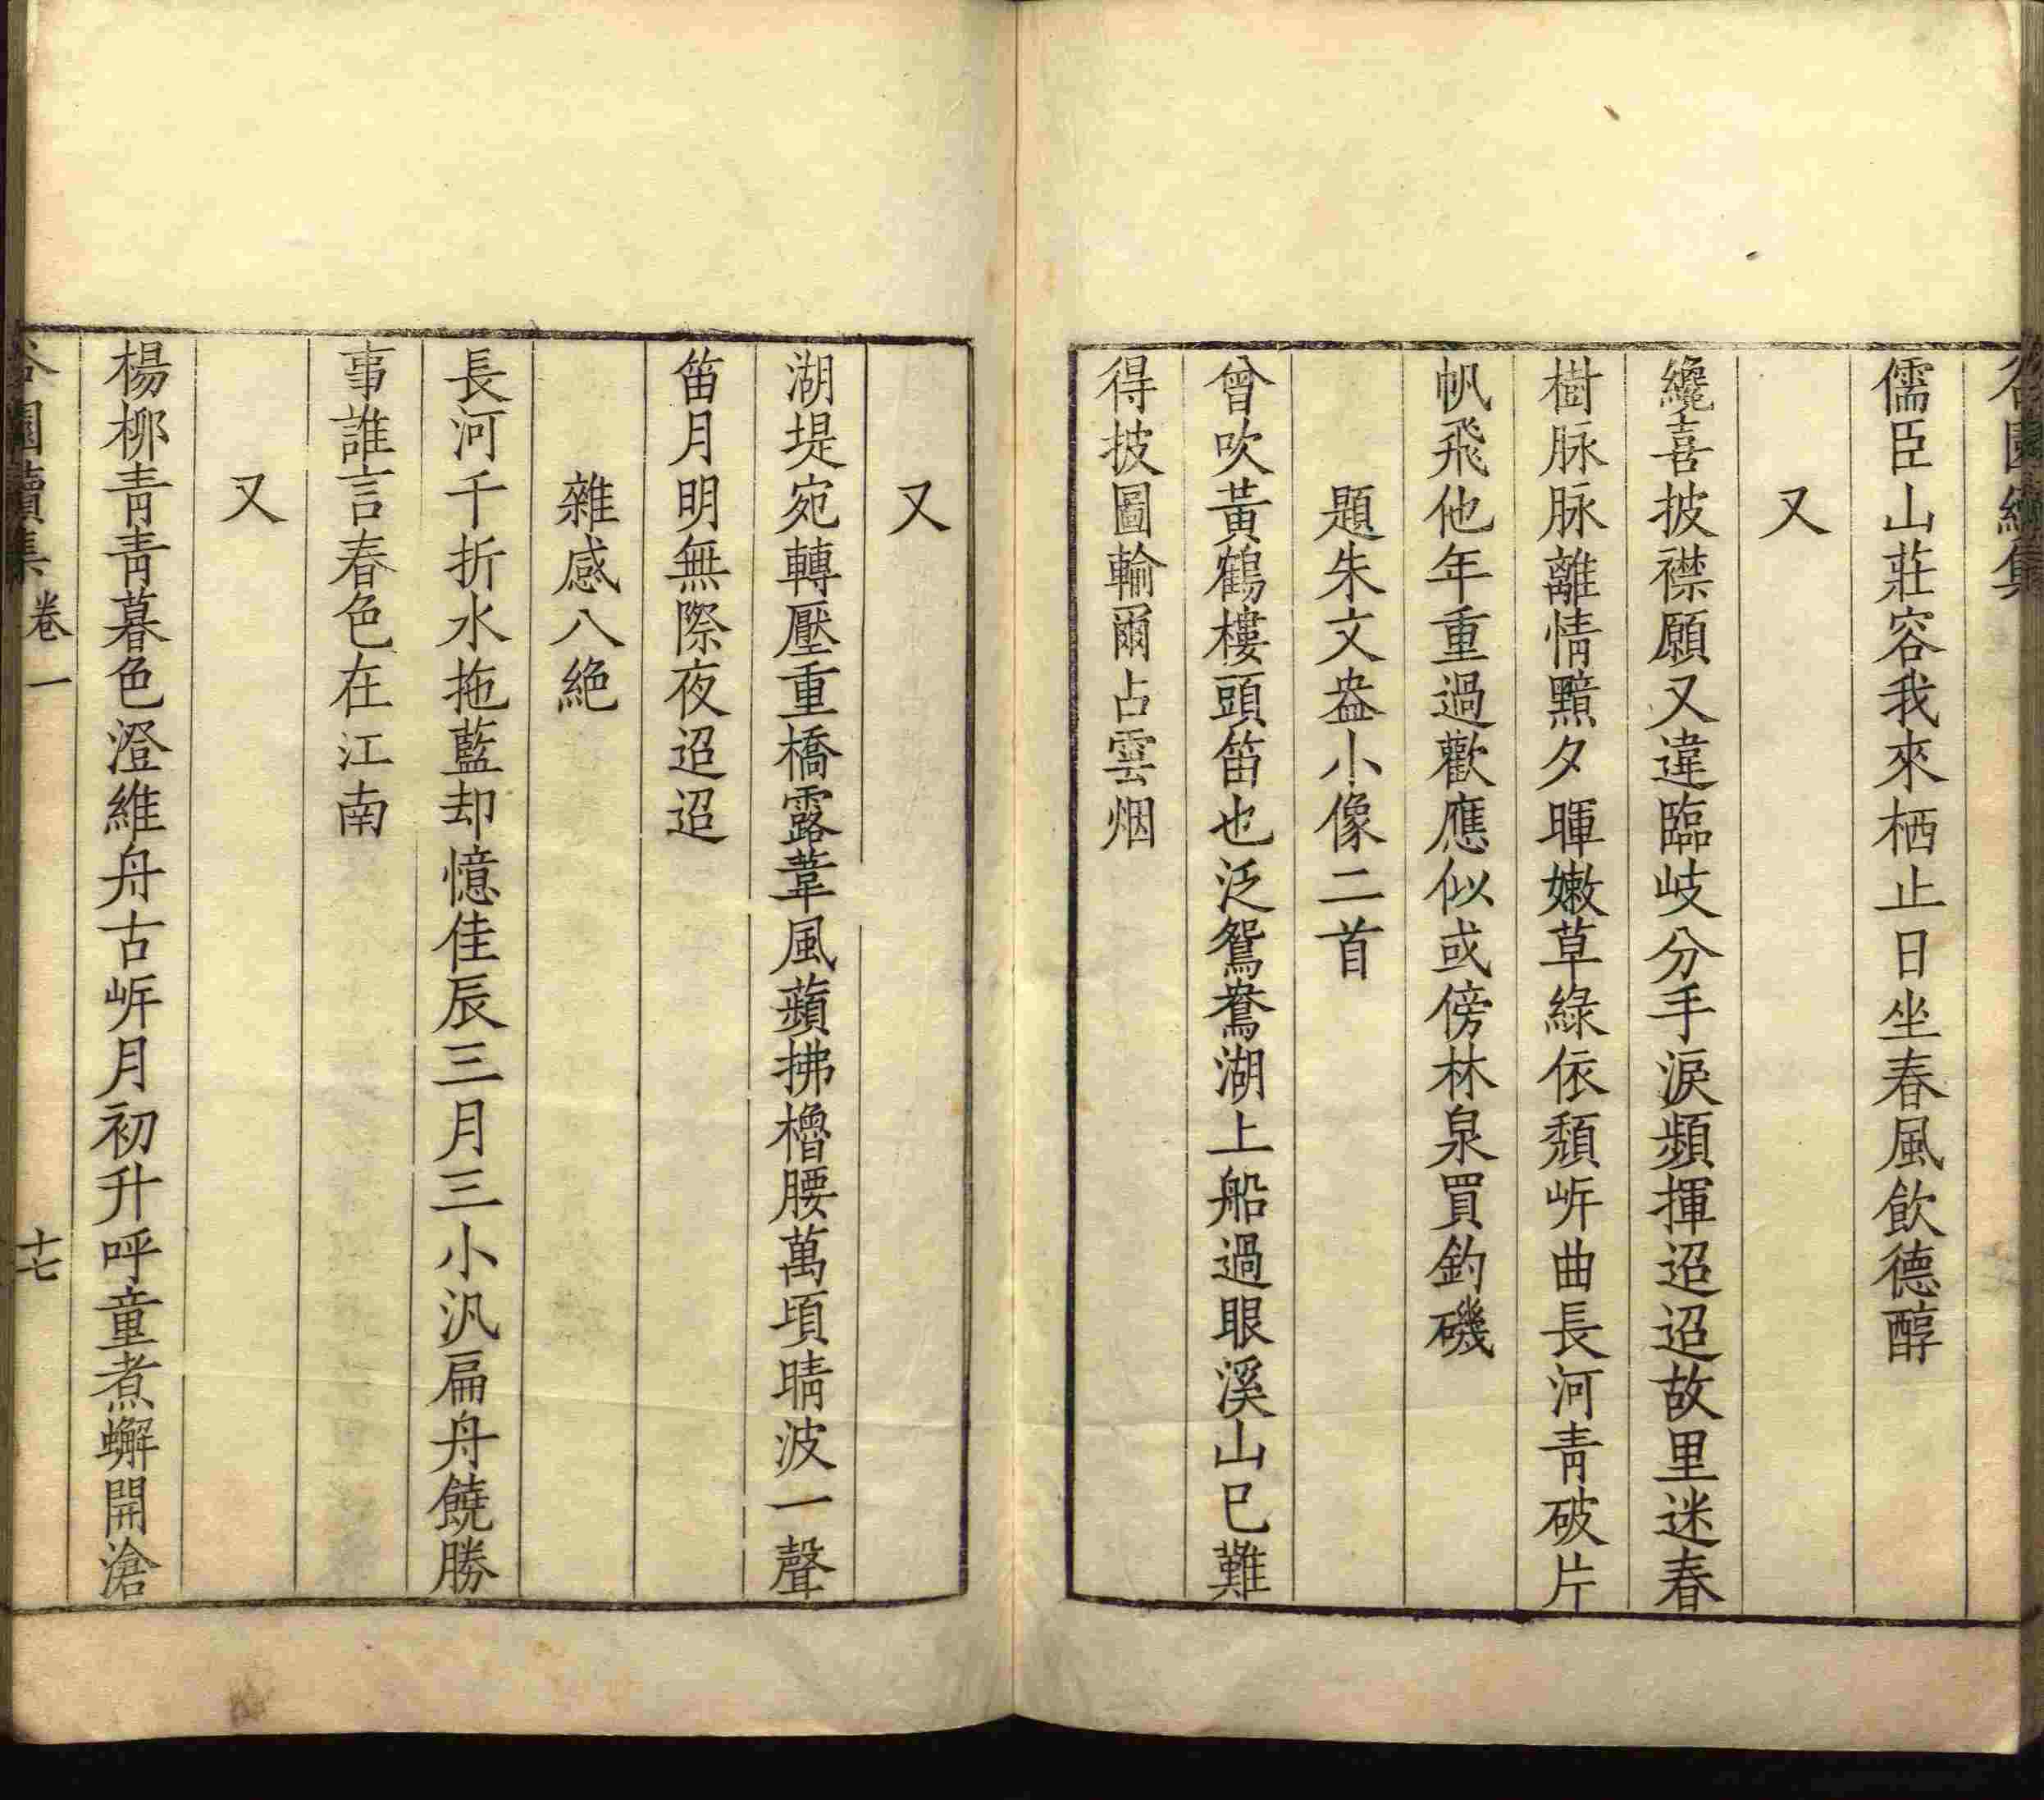 儒臣山莊容我來栖止日坐春風飲德醇
又
纔喜披襟願又違臨岐分手淚頻揮迢迢故里迷春
樹脉脉離情黯夕暉嫩草綠依頹岸曲長河青破片
帆飛他年重過歡應似或傍林泉買釣磯
題朱文盎小像二首
曾吹黃鶴樓頭笛也泛鴛鴦湖上船過眼溪山已難
得披圖輸爾占雲烟
又
湖堤宛轉壓重橋露葦風蘋拂櫓腰萬頃晴波一聲
笛月明無際夜迢迢
雜感八絕
長河千折水拖藍却憶佳辰三月三小汎扁舟饒勝
事誰言春色在江南
又
楊柳青青暮色澄維舟古岸月初升呼童煮蠏開滄
園續集 卷一 十七